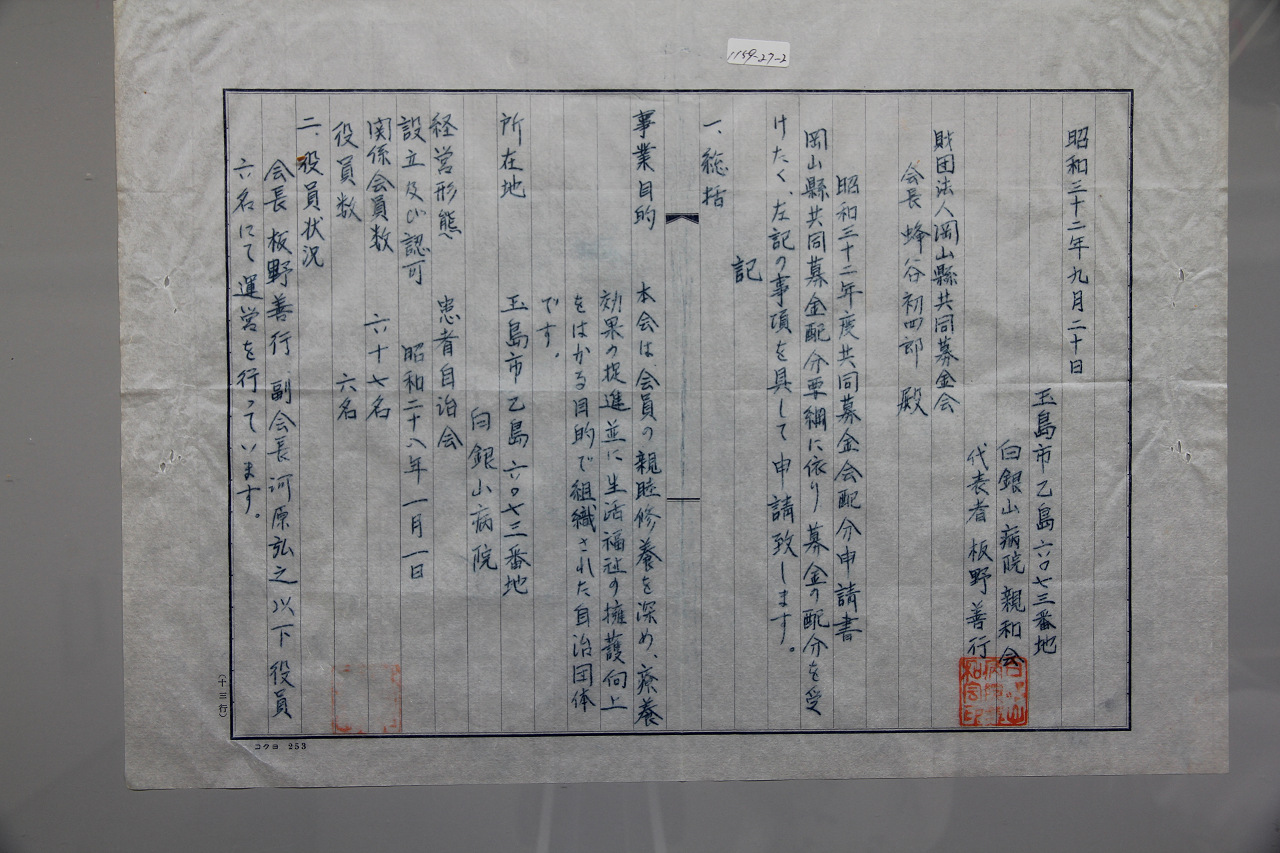 1159-27-2
昭和三十二年九月二十日
玉島市乙島六〇七三番地
白銀山病院親和会
代表者 板野善行
財団法人岡山縣共同募金会
会長 蜂谷初四郎 殿
昭和三十二年度共同募金会配分申請書
岡山縣共同募金配分要綱に依り募金の配分を受
けたく、左記の事項を具して申請致します。
記
一、総括
事業目的 本会は会員の親睦修養を深め、療養
効果の促進並に生活福祉の擁護向上
をはかる目的で組織された自治団体
です。
所在地 玉島市乙島六〇七三番地
白銀山病院
経営形態 患者自治会
設立及び認可 昭和二十八年一月一日
関係会員数 六十七名
役員数 六名
二、役員状況
会長 板野善行 副会長河原弘之以下役員
六名にて運営を行っています。
(十三行)
コクヨ 253